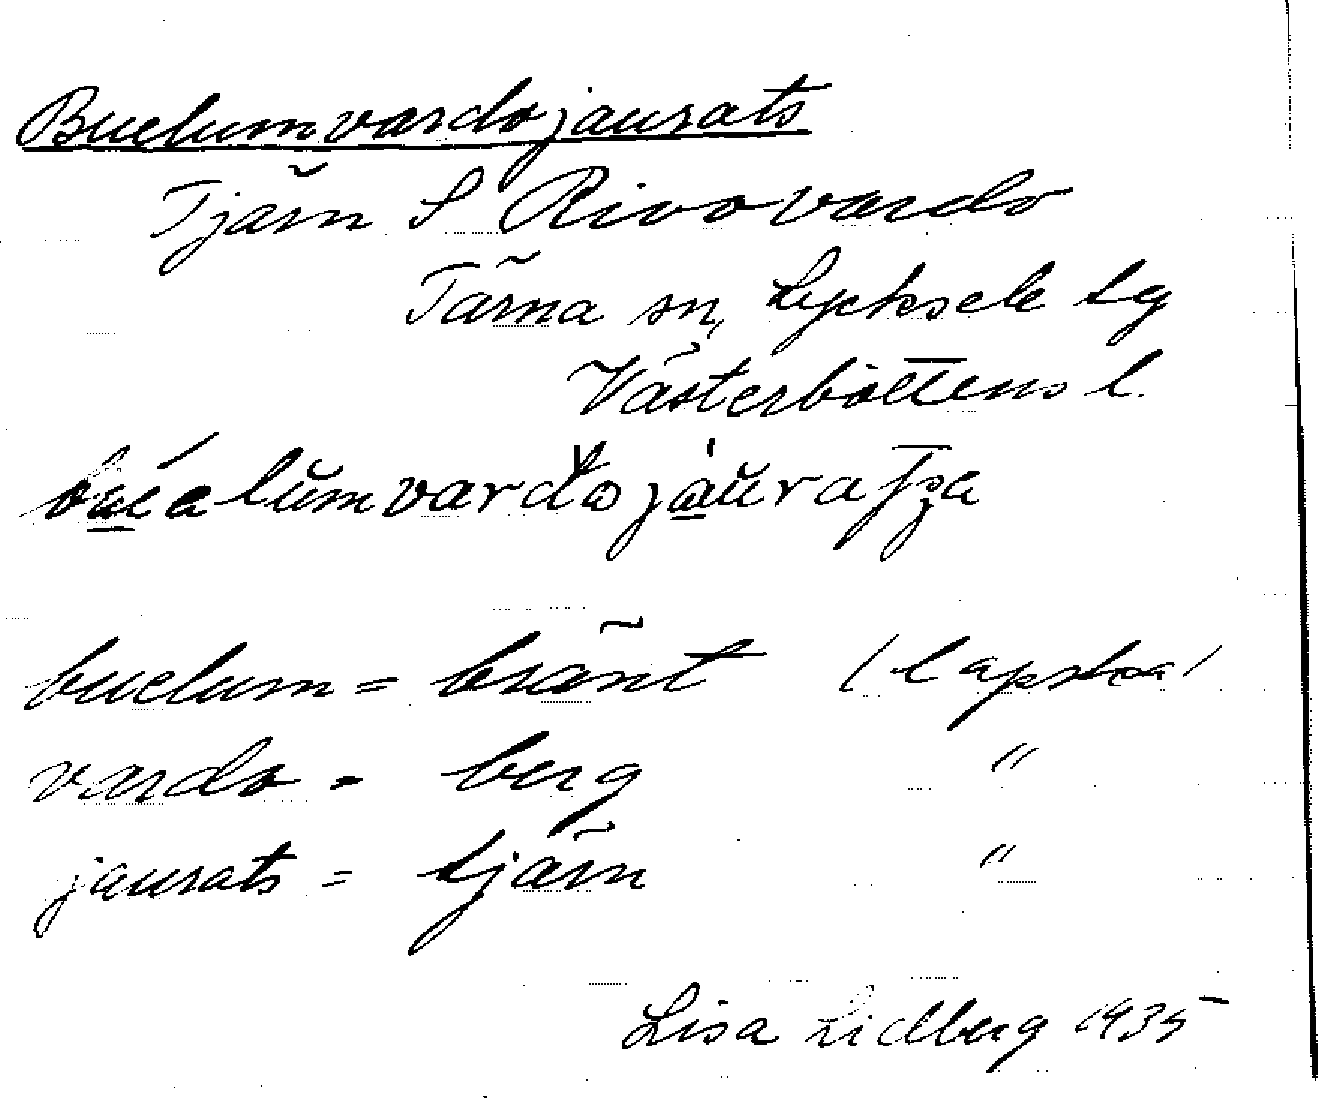 Buelumvardojaurats
Tjärn S Rivovardo
Tärna sn, Lycksele lg
Västerbottens l.
buelum = bränt (lapska)
vardo = berg "
jaurats = tjärn "
Lisa Lidberg 1935